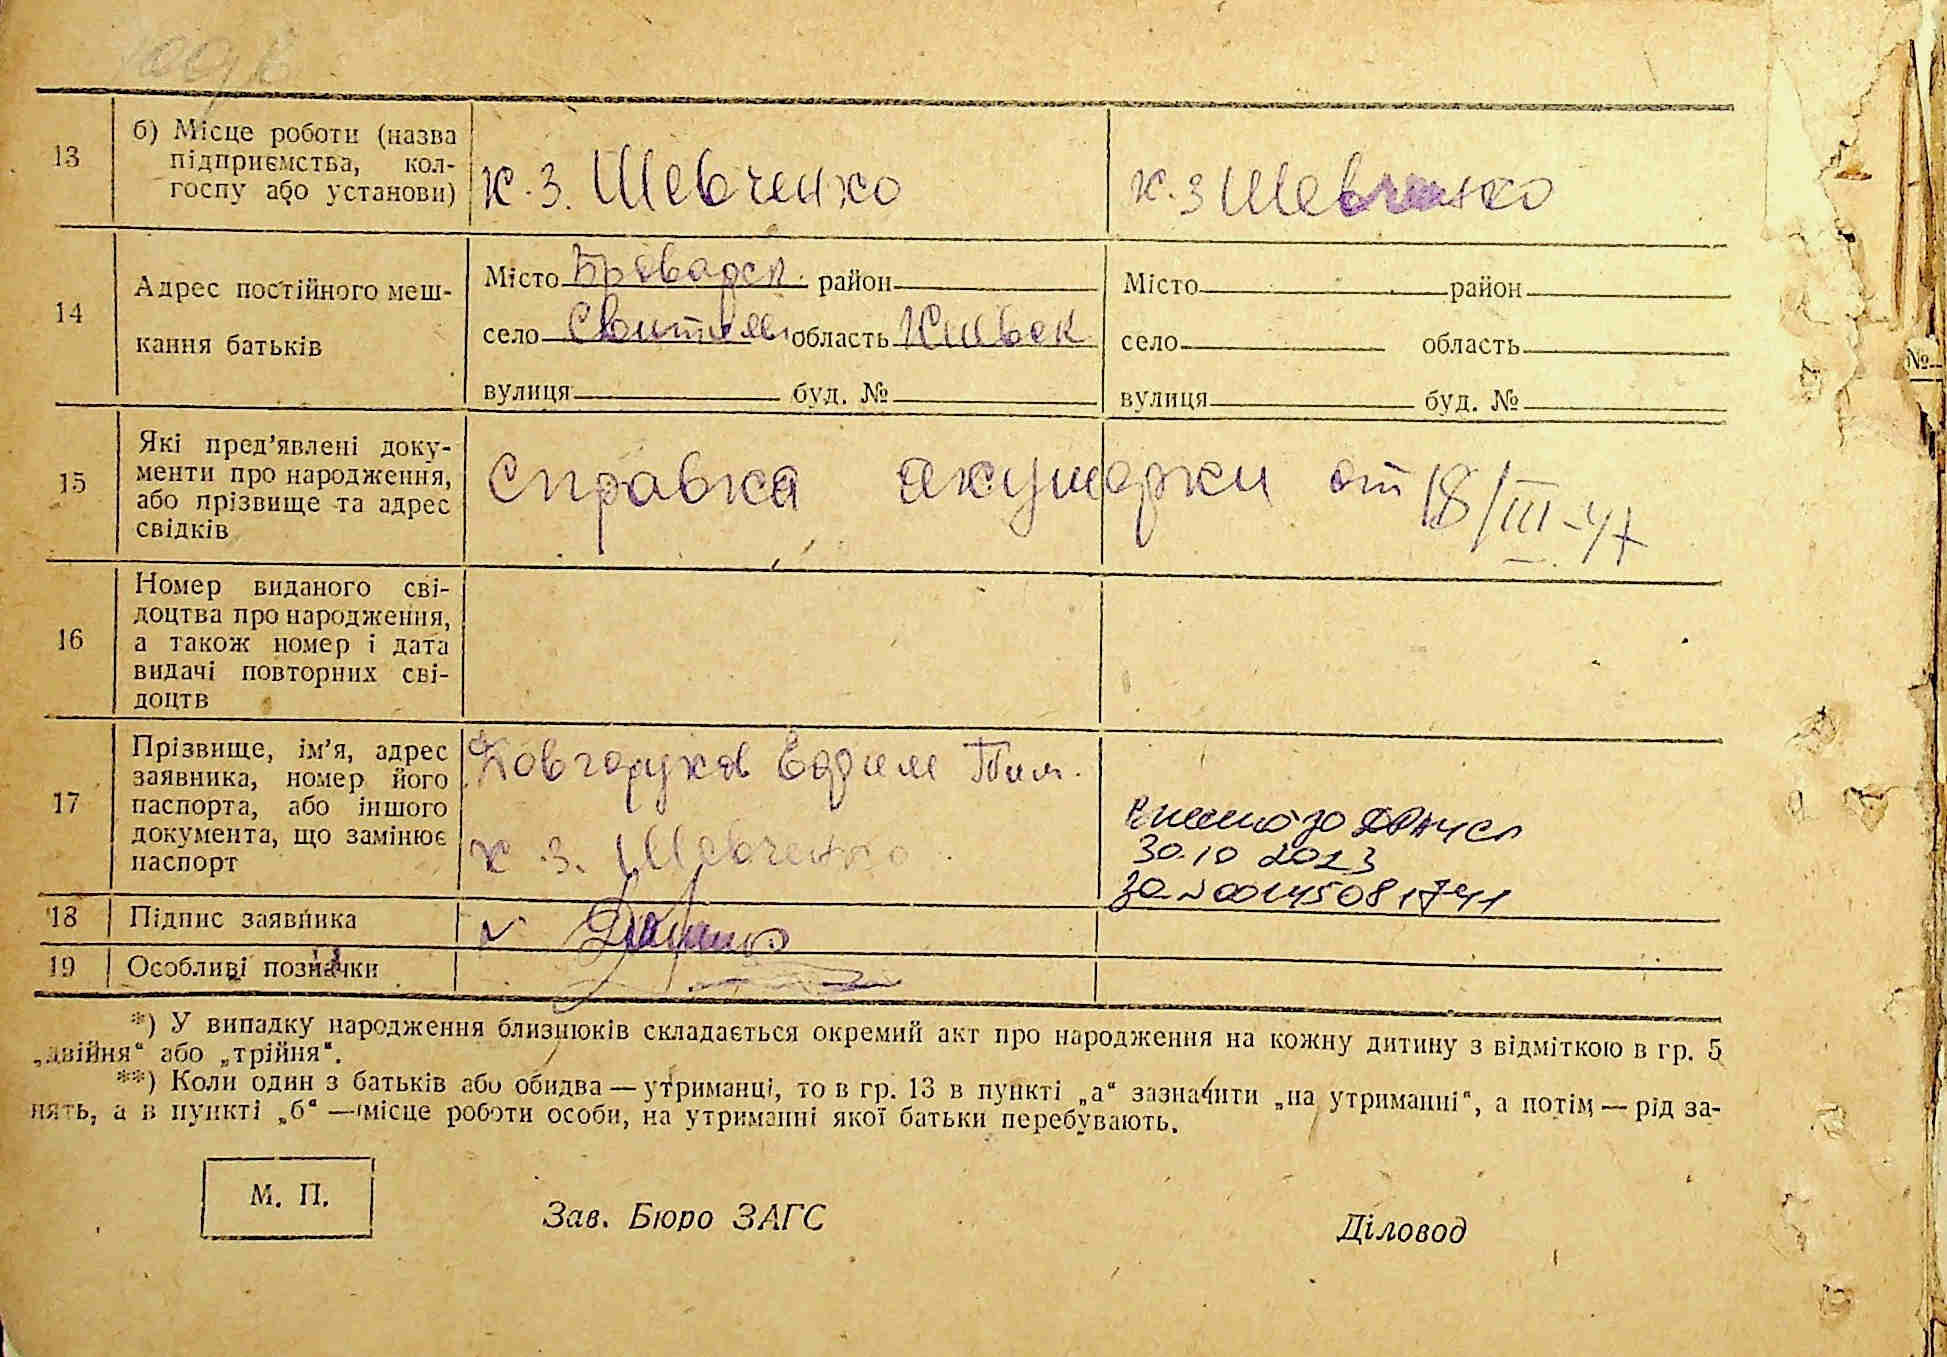 13
б) Місце роботи (назва
підприємства, кол-
госпу або установи)
к. з. Шевченко
к. з Шевченко
14
Адрес постійного меш-
кання батьків
Місто Броварск. район
село область Киевск
вулиця буд. №
Місто район
село область
вулиця буд. №
15
Які пред’явлені доку-
менти про народження,
або прізвище та адрес
свідків
Справка акушерки от 18/III-47
16
Номер виданого сві-
доцтва про народження,
а також номер і дата
видачі повторних сві-
доцтв
17
Прізвище, ім’я, адрес
заявника, номер його
паспорта, або іншого
документа, що замінює
паспорт
Ефим
к. з. Шевченко
до ДРАЦС
30.10 2023
за №00145081741
18
Підпис заявника
19
Особливі позначки
*) У випадку народження близнюків складається окремий акт про народження на кожну дитину з відміткою в гр. 5
„двійня“ або „трійня“.
**) Коли один з батьків або обидва — утриманці, то в гр. 13 в пункті „а“ зазначити „на утриманні“, а потім — рід за-
нять, а в пункті „б“ — місце роботи особи, на утриманні якої батьки перебувають.
М. П.
Зав. Бюро ЗАГС
Діловод
№